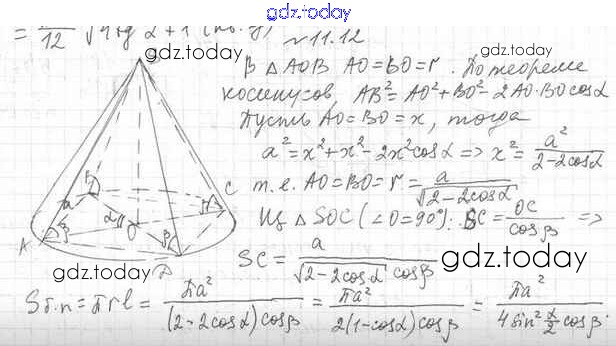 gdz.today
№ 11.12
gdz.today
gdz.today
В △ AOB AO = BO = r . По теореме
косинусов, AB² = AO² + BO² - 2AO·BO cosα
Пусть AO = BO = x, тогда
a² = x² + x² - 2x² cosα => x² = a² / (2 - 2cosα)
т.е. AO = BO = r = a / √(2 - 2cosα)
Из △ SOC (∠O = 90°): SC = OC / cosβ =>
SC = a / (√(2 - 2cosα) cosβ)
gdz.today
B
C
a
α
O
β
β
β
A
gdz.today
Sб.п = πrl = πa² / ((2 - 2cosα)cosβ) = πa² / (2(1 - cosα)cosβ) = πa² / (4 sin² α/2 cosβ) .